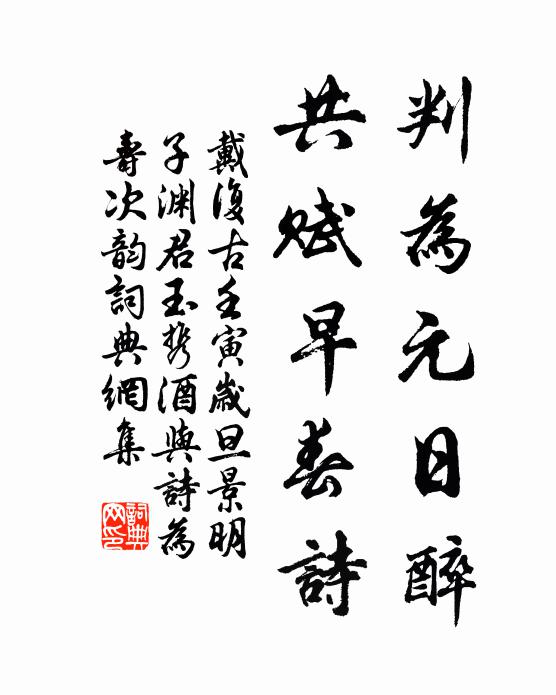 判為元日醉
共賦早春詩
戴復古壬寅歲旦景明
子淵君玉携酒與詩為
壽次韵詞典網集
詞典
网印